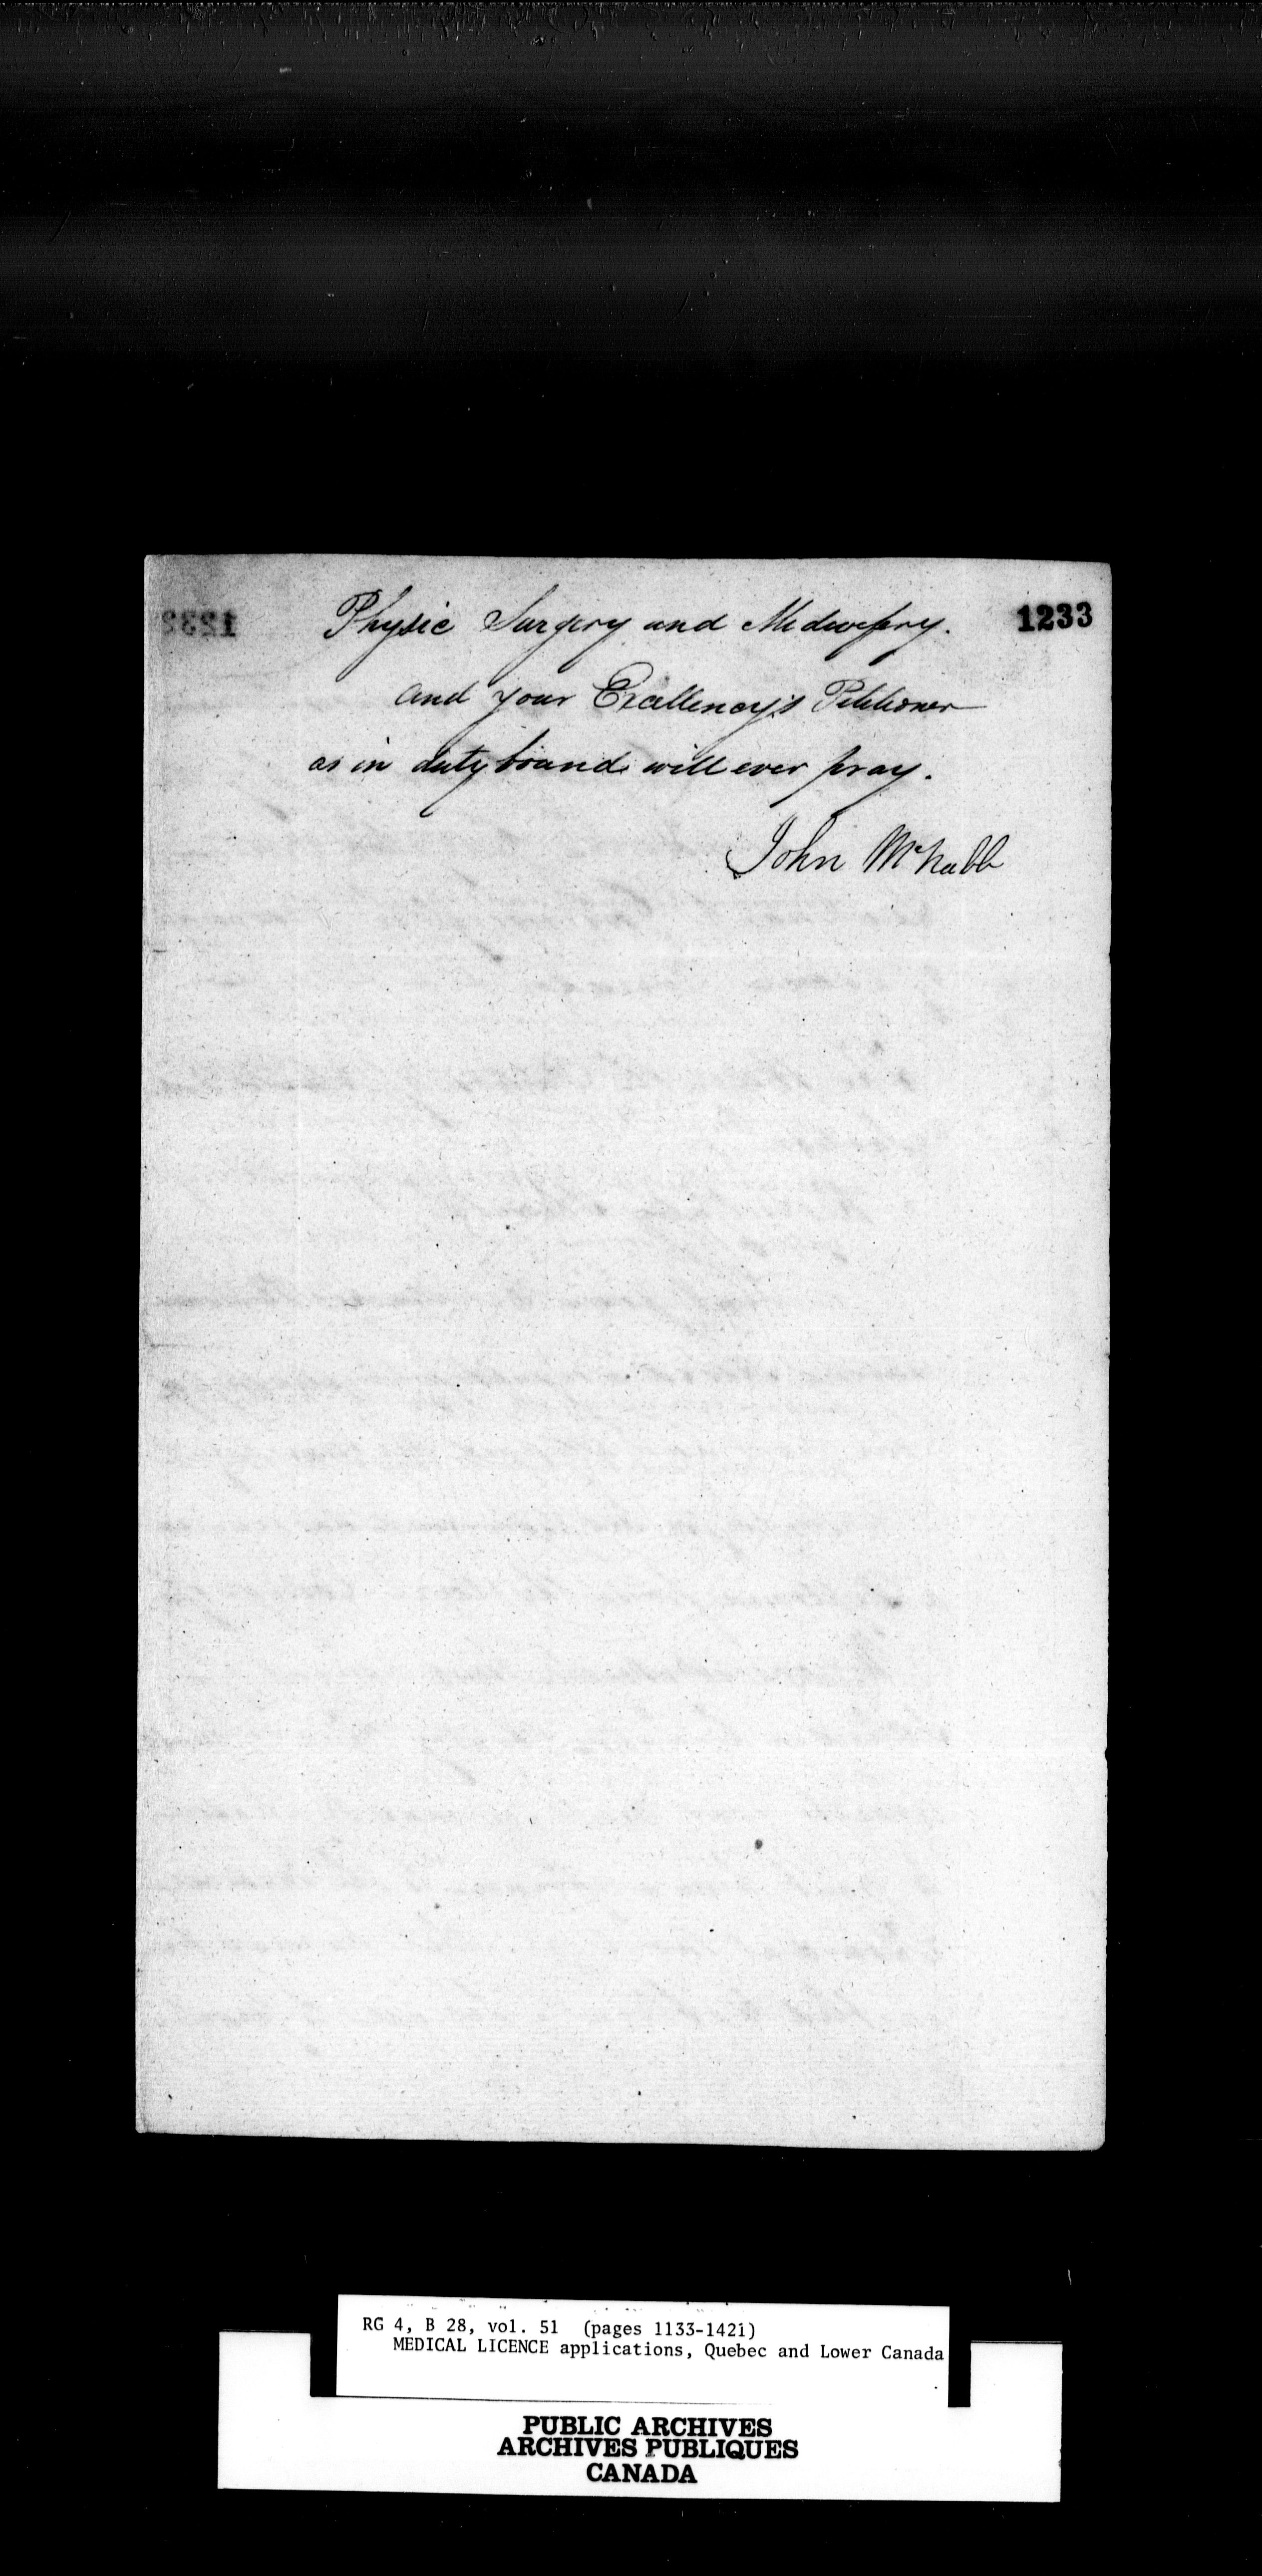 1233
Physic Surgery and Midwifery.
and your Excellency's Petitioner
as in duty bound will ever pray.
John McNabb
RG 4, B 28, vol. 51 (pages 1133-1421)
MEDICAL LICENCE applications, Quebec and Lower Canada
PUBLIC ARCHIVES
ARCHIVES PUBLIQUES
CANADA